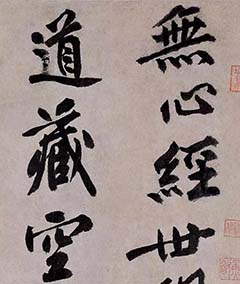 無心經世
道藏空